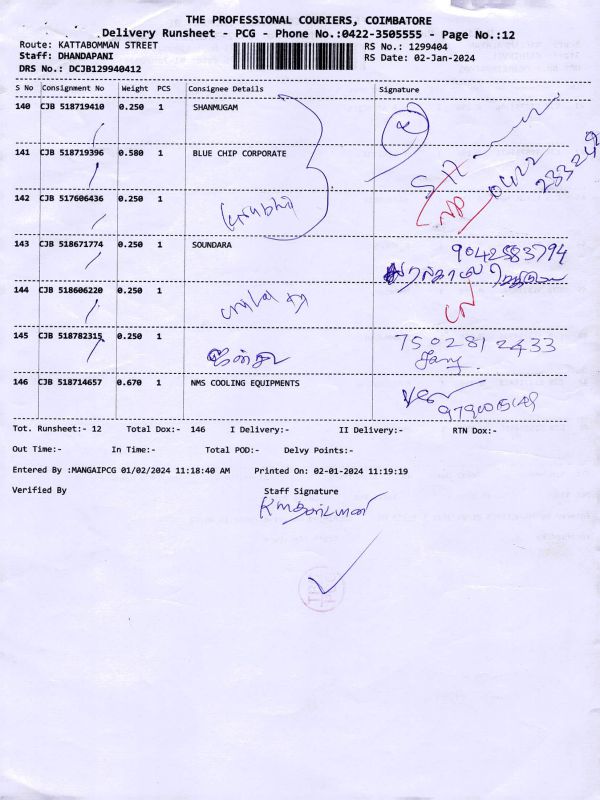 THE PROFESSIONAL COURIERS, COIMBATORE
Delivery Runsheet - PCG - Phone No.:0422-3505555 - Page No.:12
Route: KATTABOMMAN STREET
RS No.: 1299404
Staff: DHANDAPANI
RS Date: 02-Jan-2024
DRS No.: DCJB129940412
S No Consignment No Weight PCS Consignee Details Signature
140 CJB 518719410 0.250 1 SHANMUGAM
141 CJB 518719396 0.580 1 BLUE CHIP CORPORATE
0422
233242
142 CJB 517606436 0.250 1
143 CJB 518671774 0.250 1 SOUNDARA
9042583794
144 CJB 518606220 0.250 1
145 CJB 518782315 0.250 1
7502812433
146 CJB 518714657 0.670 1 NMS COOLING EQUIPMENTS
Tot. Runsheet:- 12 Total Dox:- 146 I Delivery:- II Delivery:- RTN Dox:-
Out Time:- In Time:- Total POD:- Delvy Points:-
Entered By :MANGAIPCG 01/02/2024 11:18:40 AM Printed On: 02-01-2024 11:19:19
Verified By Staff Signature